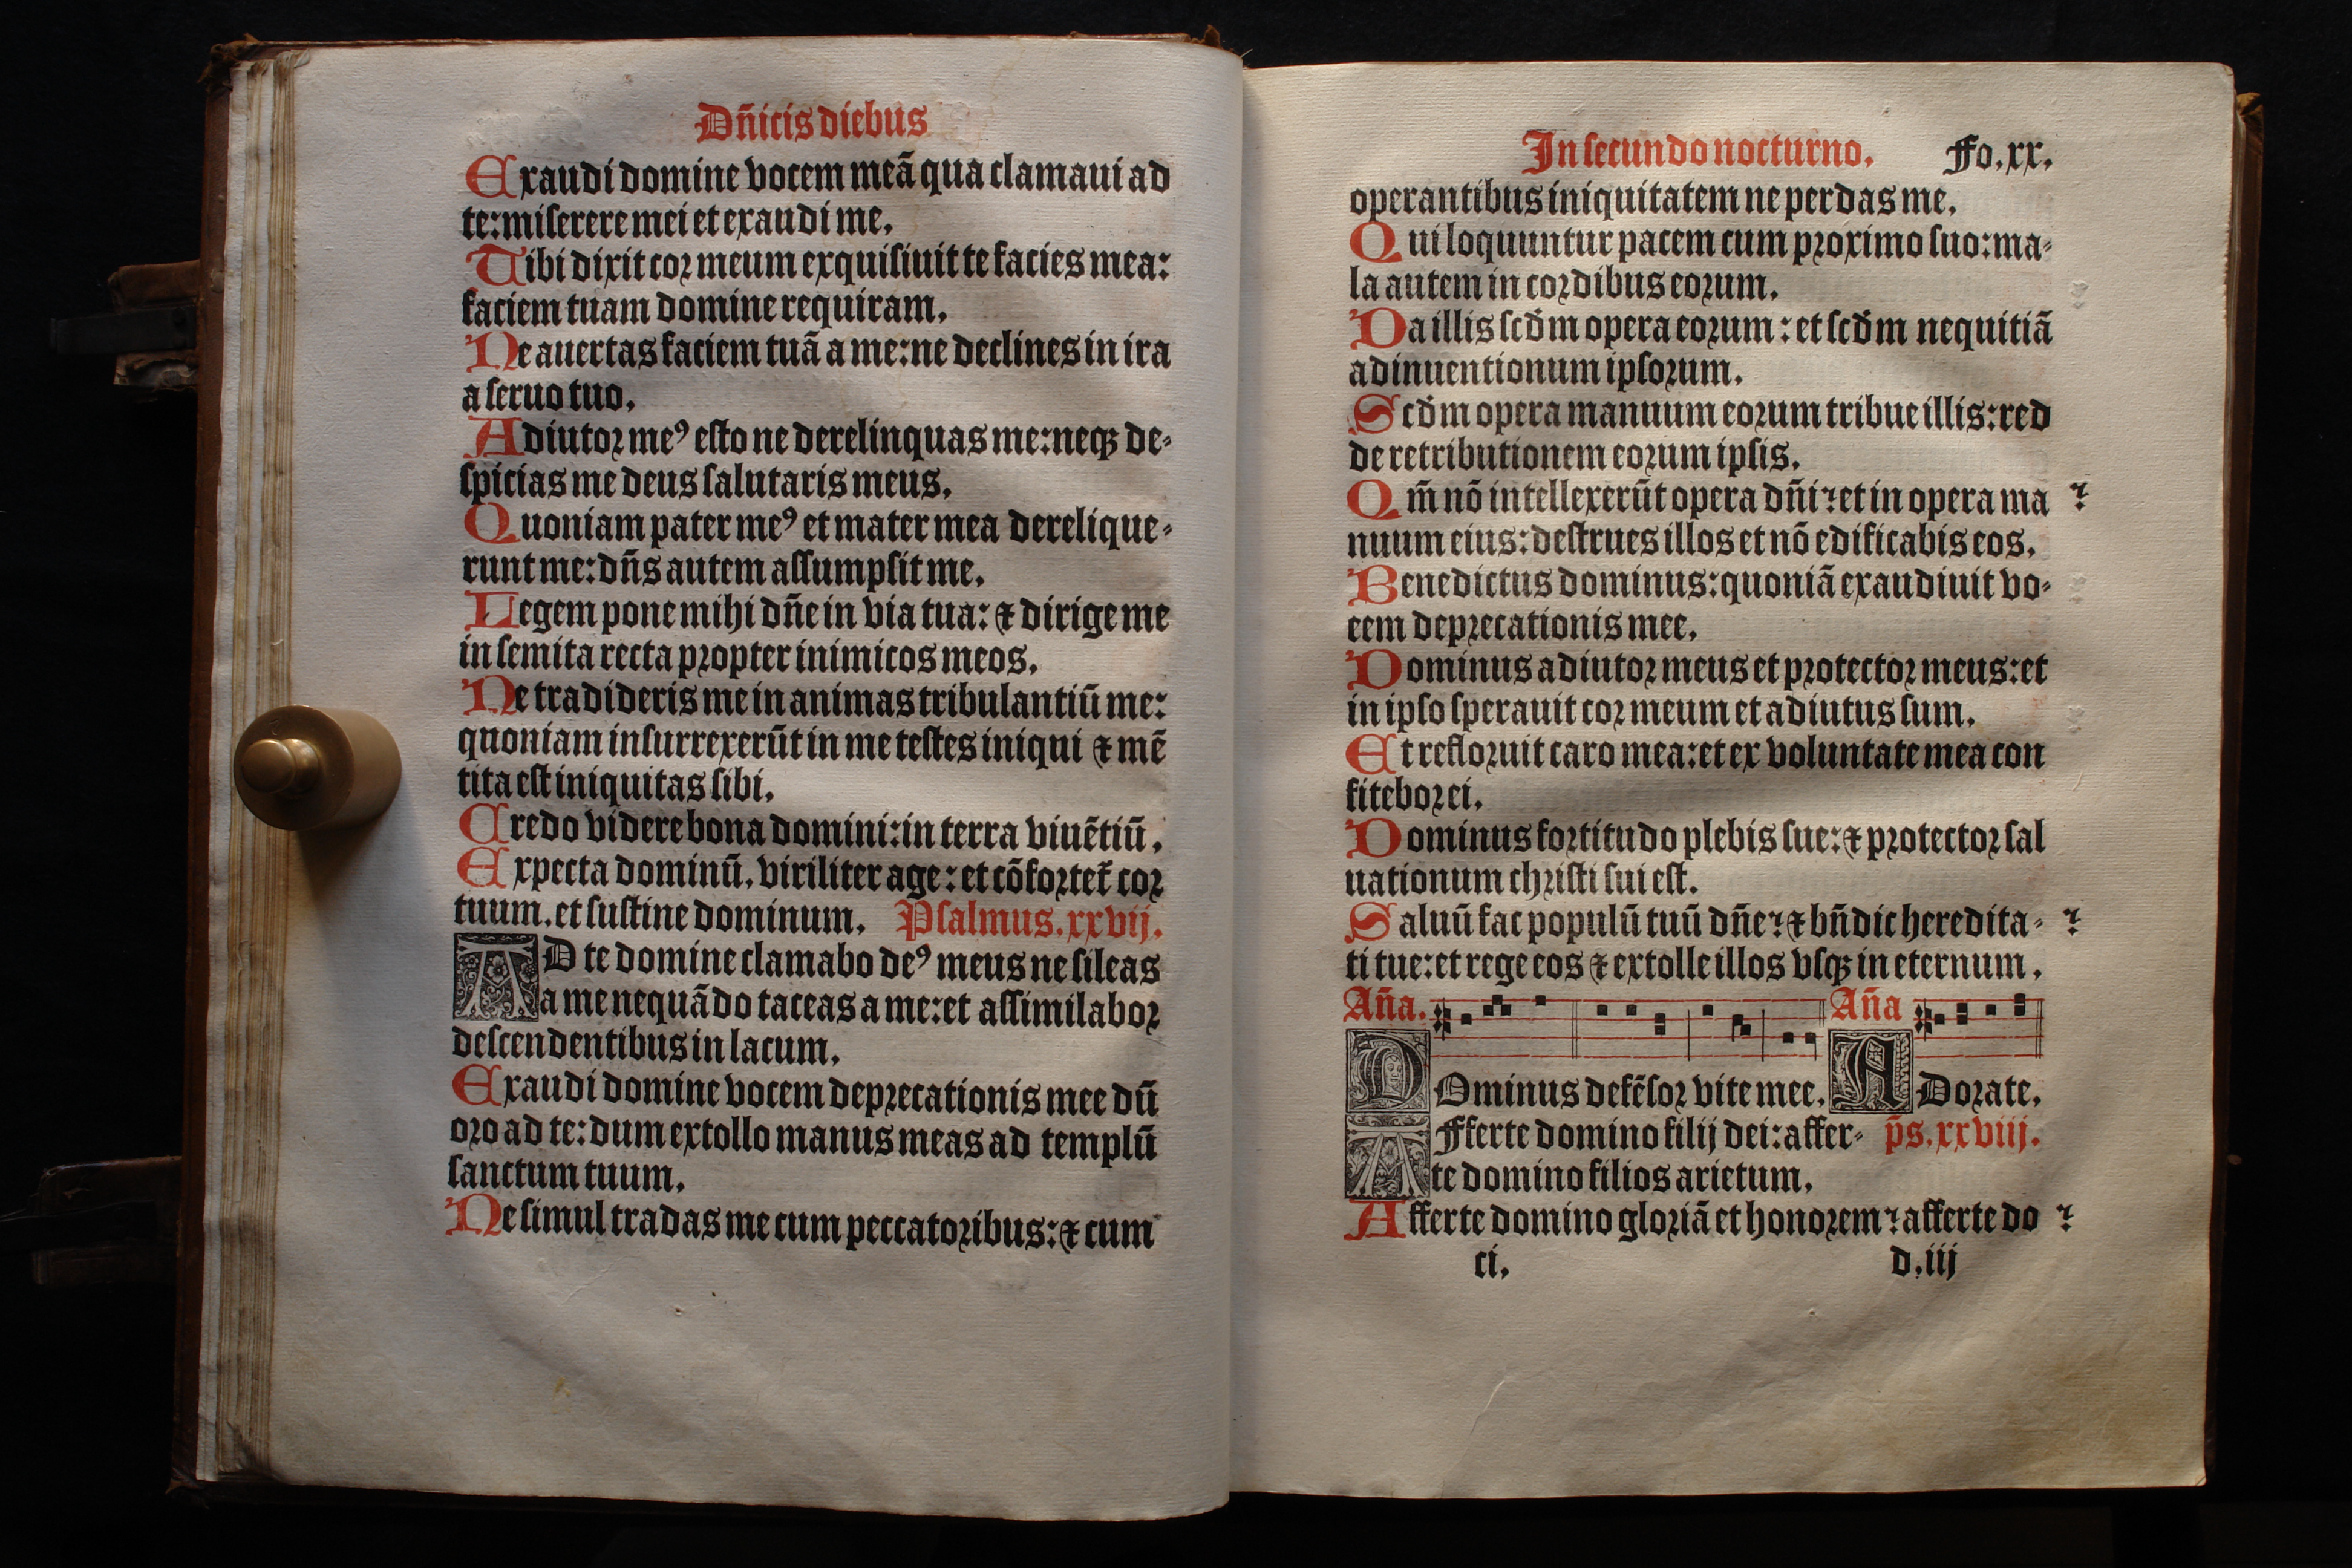 Dñicis diebus
Exaudi domine vocem meã qua clamaui ad
te: miserere mei et exaudi me.
Tibi dixit cor meum exquisiuit te facies mea:
faciem tuam domine requiram.
Ne auertas faciem tuã a me: ne declines in ira
a seruo tuo.
Adiutor meꝰ esto ne derelinquas me: neqꝫ de-
spicias me deus salutaris meus.
Quoniam pater meꝰ et mater mea derelique-
runt me: dñs autem assumpsit me.
Legem pone mihi dñe in via tua: ⁊ dirige me
in semita recta propter inimicos meos.
Ne tradideris me in animas tribulantiũ me:
quoniam insurrexerũt in me testes iniqui ⁊ mẽ
tita est iniquitas sibi.
Credo videre bona domini: in terra viuẽtiũ.
Expecta dominũ. viriliter age: et cõfortet̃ cor
tuum. et sustine dominum. Psalmus. xxvij.
AD te domine clamabo deꝰ meus ne sileas
a me nequãdo taceas a me: et assimilabor
descendentibus in lacum.
Exaudi domine vocem deprecationis mee dũ
oro ad te: dum extollo manus meas ad templũ
sanctum tuum.
Ne simul tradas me cum peccatoribus: ⁊ cum
In secundo nocturno. Fo. xx.
operantibus iniquitatem ne perdas me.
Qui loquuntur pacem cum proximo suo: ma-
la autem in cordibus eorum.
Da illis scďm opera eorum: et scďm nequitiã
adinuentionum ipsorum.
Scďm opera manuum eorum tribue illis: red
de retributionem eorum ipsis.
Qm̃ nõ intellexerũt opera dñi ⁊ et in opera ma ⁊
nuum eius: destrues illos et nõ edificabis eos.
Benedictus dominus: quoniã exaudiuit vo-
cem deprecationis mee.
Dominus adiutor meus et protector meus: et
in ipso sperauit cor meum et adiutus sum.
Et refloruit caro mea: et ex voluntate mea con
fitebor ei.
Dominus fortitudo plebis sue: ⁊ protector sal
uationum christi sui est.
Saluũ fac populũ tuũ dñe ⁊ ⁊ bñdic heredita- ⁊
ti tue: et rege eos ⁊ extolle illos vsqꝫ in eternum.
Aña. Aña
DOminus defẽsor vite mee. ADorate.
AFferte domino filij dei: affer- p̃s. xxviij.
te domino filios arietum.
Afferte domino gloriã et honorem ⁊ afferte do ⁊
ci. d. iij